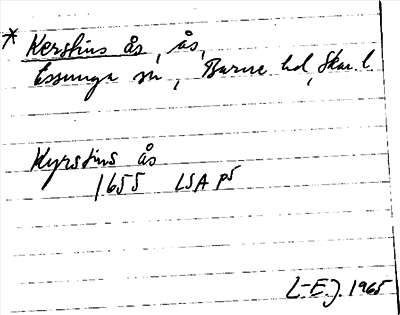 * Kerstins ås, ås,
Essunga sn, Barne hd, Skar. l.
Kyrstins ås
1655 LSA P5
L-E.J. 1965